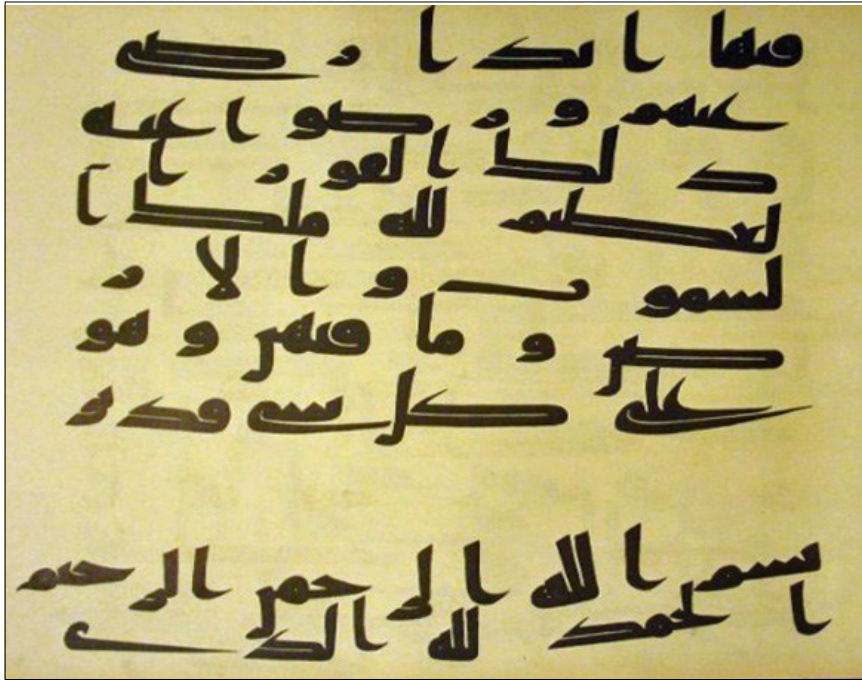 فيها ابدا رضي
عنهم و رضوا عنه
ذلك الفوز ا
لعظيم لله ملك ا
لسموت و الار
ض و ما فيهن و هو
على كل شي قدير
بسم الله الرحمن الرحيم
الحمد لله الذي